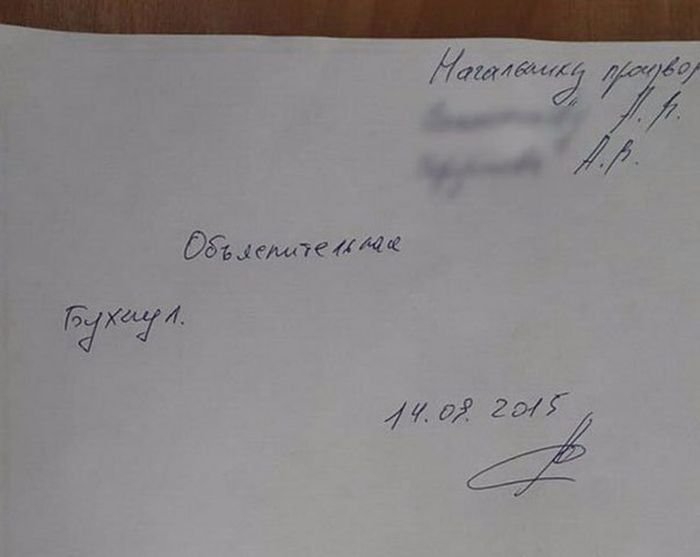 Начальнику производ
А.В.
А.В.
Объяснительная
Бухнул.
14.09.2015